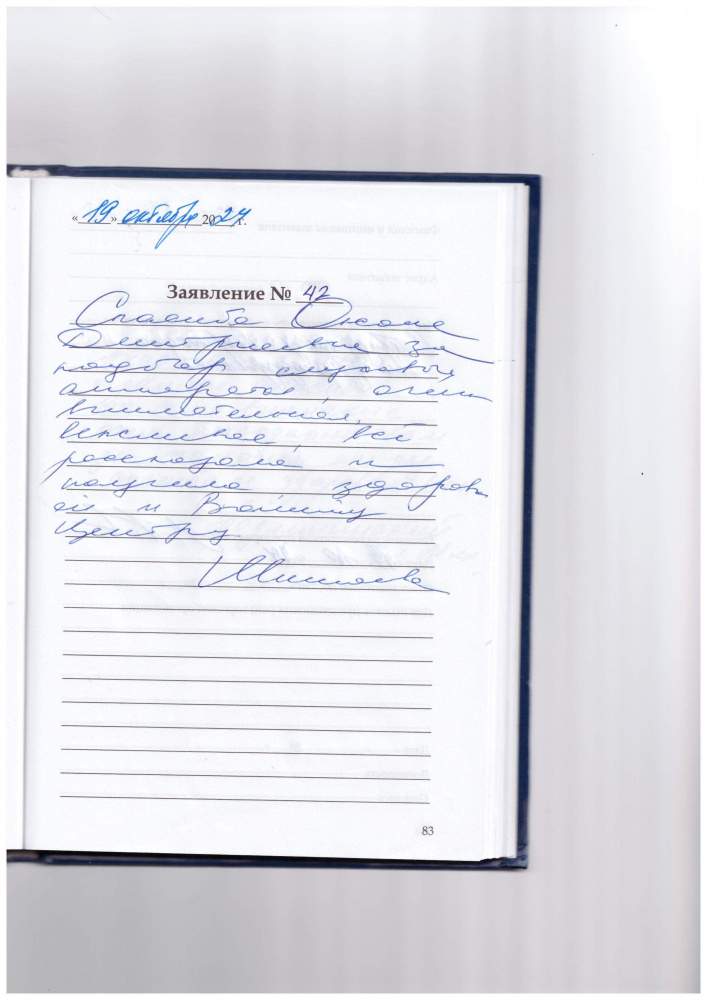 «19» октября 2024 г.
Заявление № 42
Спасибо Оксане
Дмитриевне за
подбор слуховых
аппаратов, очень
внимательная,
вежливая, всё
рассказала и
здоровья
ей и Вашему
Центру.
83